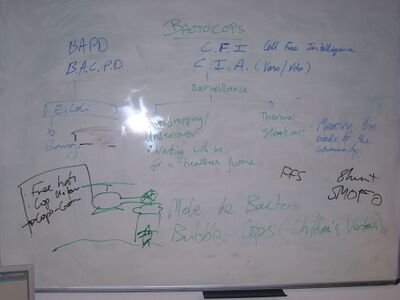 BACTOCOPS
BAPD
C.F.I Cell Free Intelligence
B.A.C.P.D
C.I.A. (Verso/Vitro)
Surveillance
E.Coli
Eavesdropping/
Undercover
Thermal
Meeting the
needs to the
community
Working with us
for a healthier future.
Free hats
Cop Motor
FFS
Shunt
SMOFO
Mole de Bacto
Bubble-Cops (Children's Version)